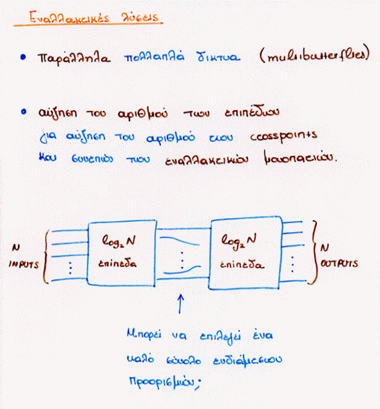 Εναλλακτικές λύσεις
• Παράλληλα πολλαπλά δίκτυα (multibutterflies)
• αύξηση του αριθμού των επιπέδων
για αύξηση του αριθμού των crosspoints
και συνεπώς των εναλλακτικών μονοπατιών.
N
INPUTS
log₂N
επίπεδα
log₂N
επίπεδα
N
OUTPUTS
Μπορεί να επιλεγεί ένα
καλό σύνολο ενδιάμεσων
προορισμών;